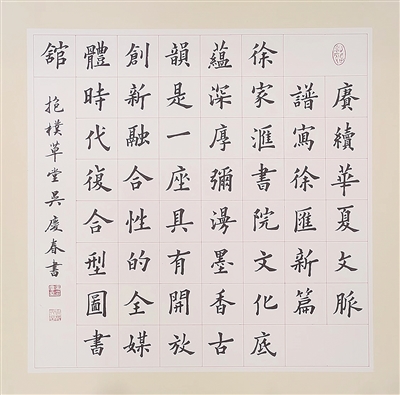 賡續華夏文脈
譜寫徐匯新篇
徐家匯書院文化底
蘊深厚彌漫墨香古
韻是一座具有開放
創新融合性的全媒
體時代復合型圖書
舘
抱樸草堂吳慶春書